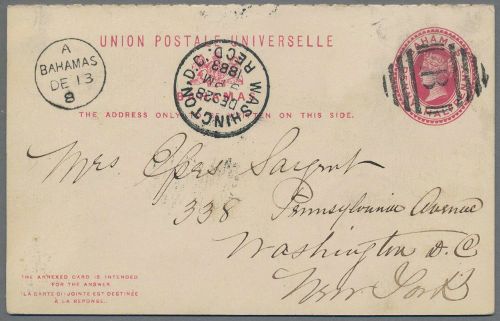 UNION POSTALE UNIVERSELLE
A
BAHAMAS
DE 13
8
WASHINGTON, D.C.
REC'D.
1888
BAHAMAS
THE ADDRESS ONLY TO BE WRITTEN ON THIS SIDE.
Mrs Sargent
338 Pennsylvania Avenue
Washington D.C
New York
THE ANNEXED CARD IS INTENDED
FOR THE ANSWER.
LA CARTE CI-JOINTE EST DESTINÉE
À LA RÉPONSE.